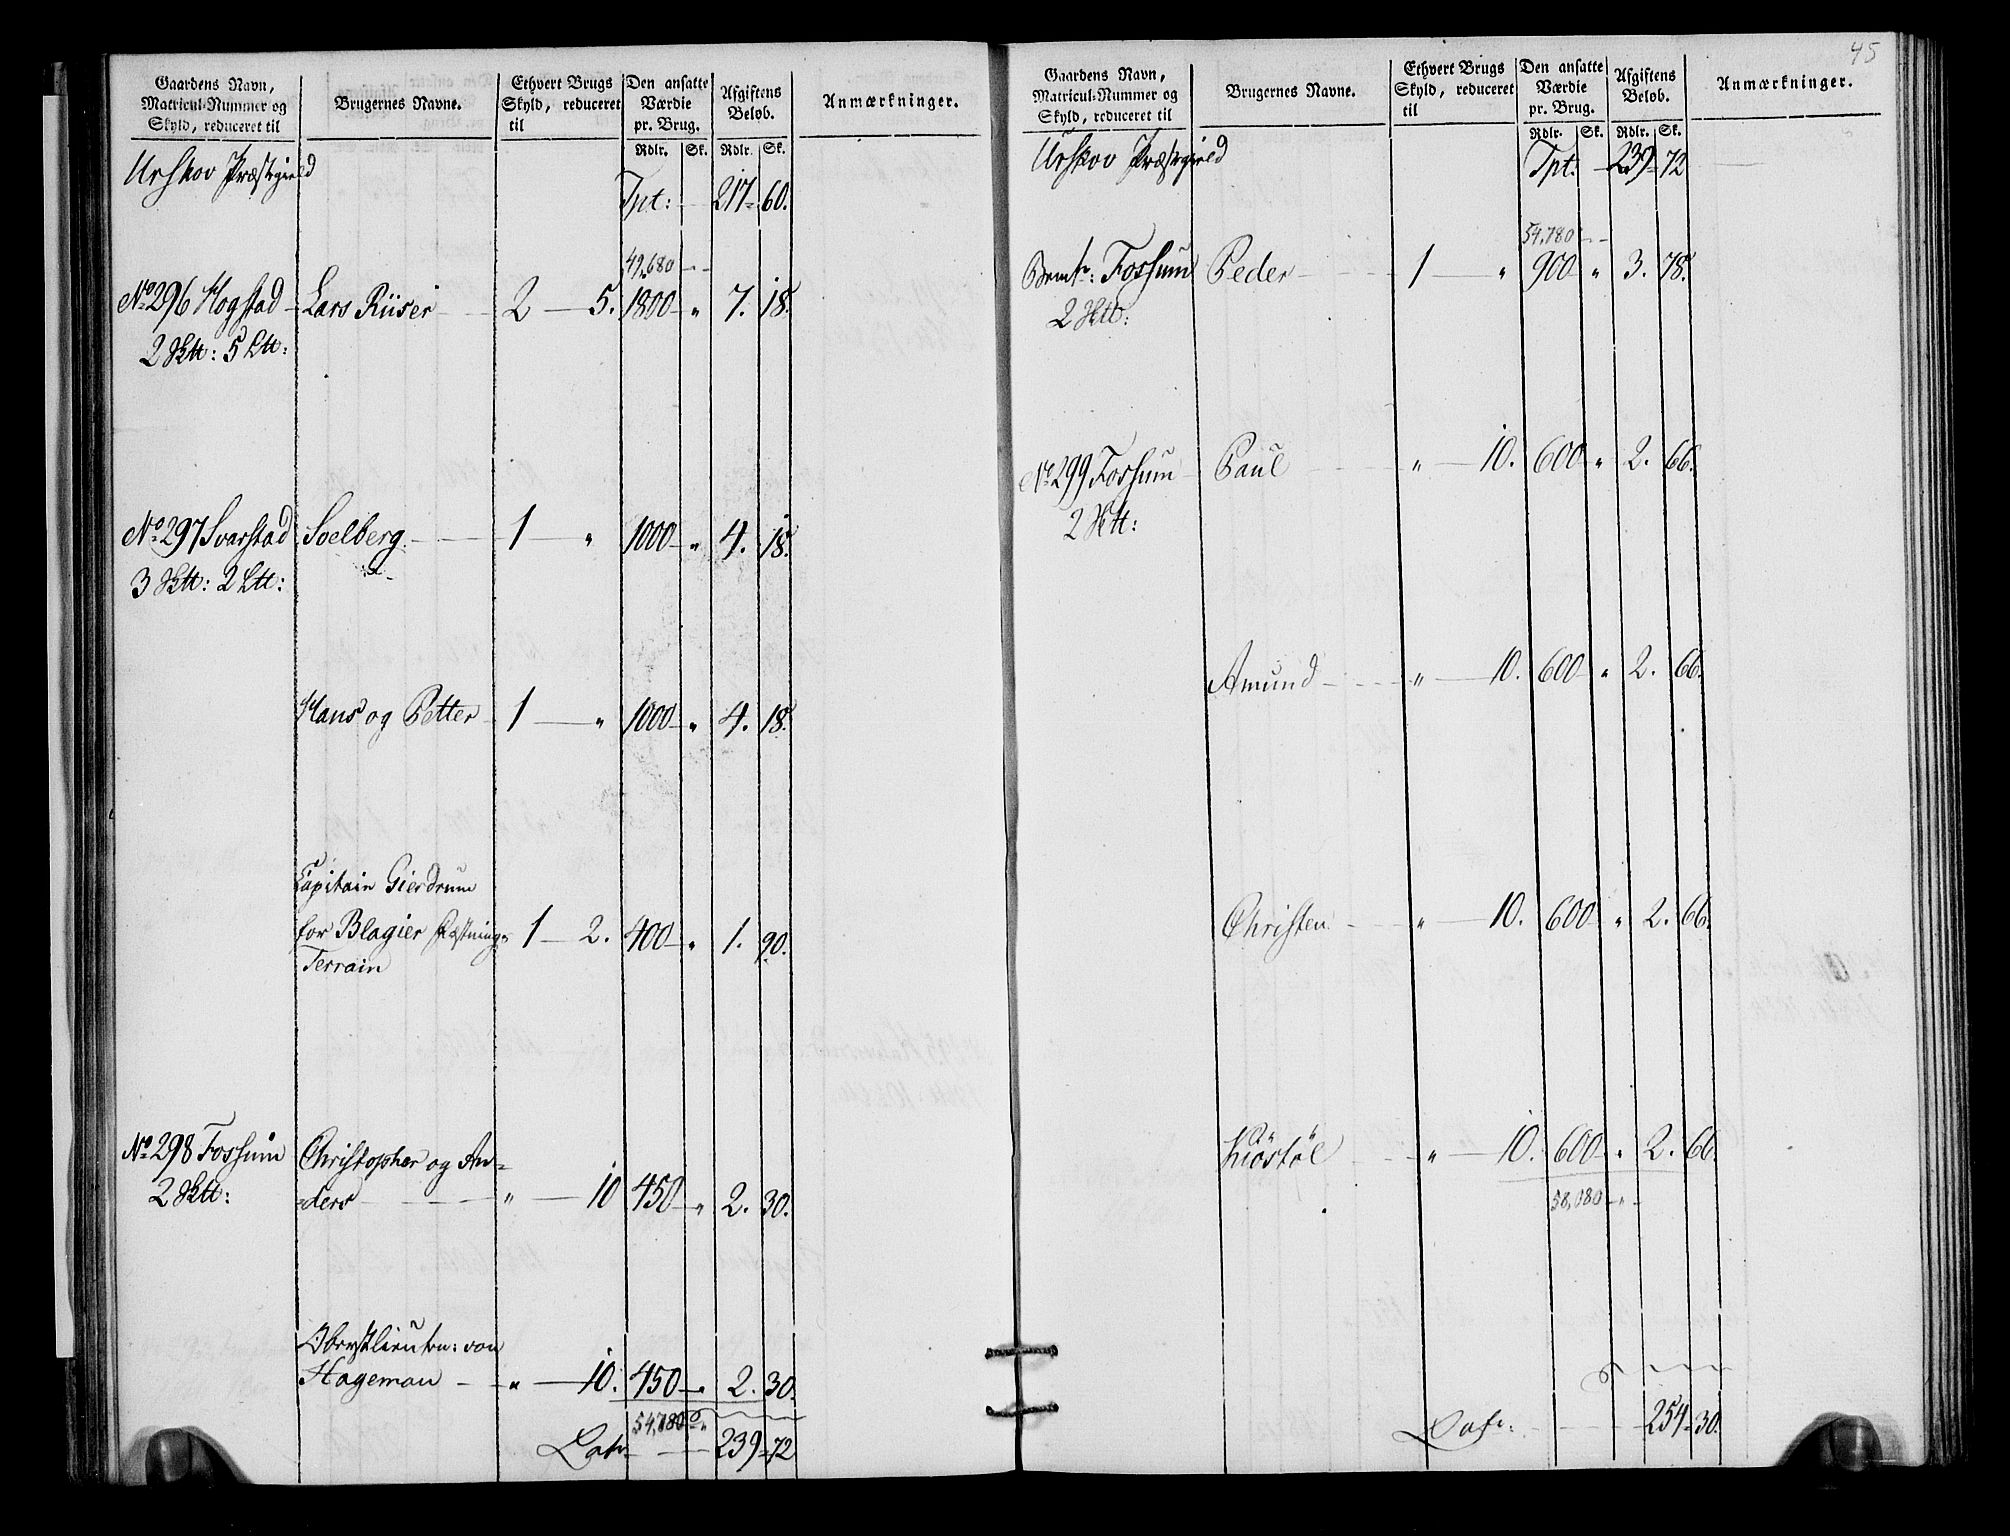 Gaardens Navn, Matricul-Nummer og Skyld, reduceret til
Brugernes Navne.
Ethvert Brugs Skyld, reduceret til
Den ansatte Værdie pr. Brug.
Afgiftens Beløb.
Anmærkninger.
Rdlr. Sk. Rdlr. Sk.
Urskov Præstegield
Tpt: 217 60.
49,680
No 296 Hogstad Lars Riiser 2 5. 1800 " 7. 18.
2 Sktt: 5 Ltt:
No 297 Svarstad Soelberg 1 " 1000 " 4. 18.
3 Sktt: 2 Ltt:
Hans og Petter 1 " 1000 " 4. 18.
Capitain Gierdrum
for Blagier Fæstning- 1 2. 400 " 1. 90.
Terrain
No 298 Fossum Christopher og An-
2 Sktt: -ders " 10 450 " 2. 30.
Obrystlieutn: von
Hageman " 10. 450 " 2. 30.
54,780 "
Latr 239 72
45
Gaardens Navn, Matricul-Nummer og Skyld, reduceret til
Brugernes Navne.
Ethvert Brugs Skyld, reduceret til
Den ansatte Værdie pr. Brug.
Afgiftens Beløb.
Anmærkninger.
Rdlr. Sk. Rdlr. Sk.
Urskov Præstegield
Tpt: 239 72
54,780
Fossum Peder 1 " 900 " 3. 78.
2 Sktt:
No 299 Fossum Paul " 10. 600 " 2. 66.
2 Sktt:
Amund " 10. 600 " 2. 66.
Christen " 10. 600 " 2. 66.
Kiöstöl " 10. 600 " 2. 66.
58,080 "
Latr: 254 30.